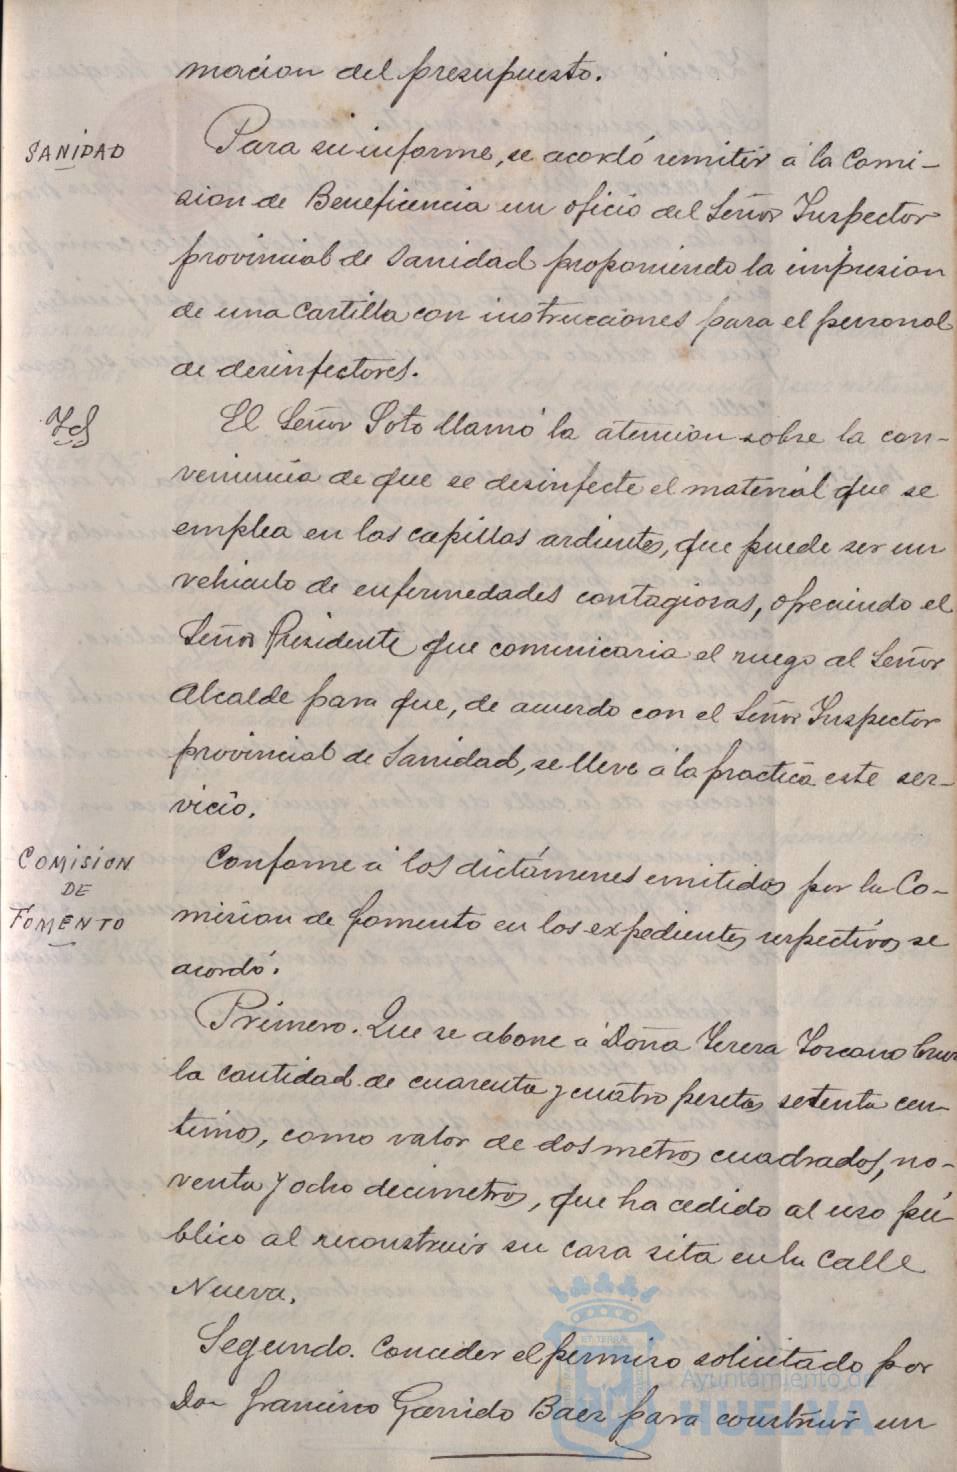 macion del presupuesto.
SANIDAD
Para su informe, se acordó remitir á la Comi-
sion de Beneficencia un oficio del Señor Inspector
provincial de Sanidad proponiendo la impresion
de una Cartilla con instrucciones para el personal
de desinfectores.
Id
El Señor Soto llamó la atencion sobre la con-
veniencia de que se desinfecte el material que se
emplea en las capillas ardientes, que puede ser un
vehiculo de enfermedades contagiosas, ofreciendo el
Señor Presidente que comunicaria el ruego al Señor
Alcalde para que, de acuerdo con el Señor Inspector
provincial de Sanidad, se lleve á la practica este ser-
vicio.
COMISION
DE
FOMENTO
Conforme á los dictámenes emitidos por la Co-
mision de Fomento en los expedientes respectivos se
acordó:
Primero. Que se abone á Doña Teresa Toscano Cruz
la cantidad de cuarenta y cuatro pesetas setenta cen-
timos, como valor de dos metros cuadrados, no-
venta y ocho decimetros, que ha cedido al uso pú-
blico al reconstruir su casa sita en la calle
Nueva.
Segundo. Conceder el permiso solicitado por
Don Francisco Garrido Baez para construir un
Ayuntamiento de
HUELVA